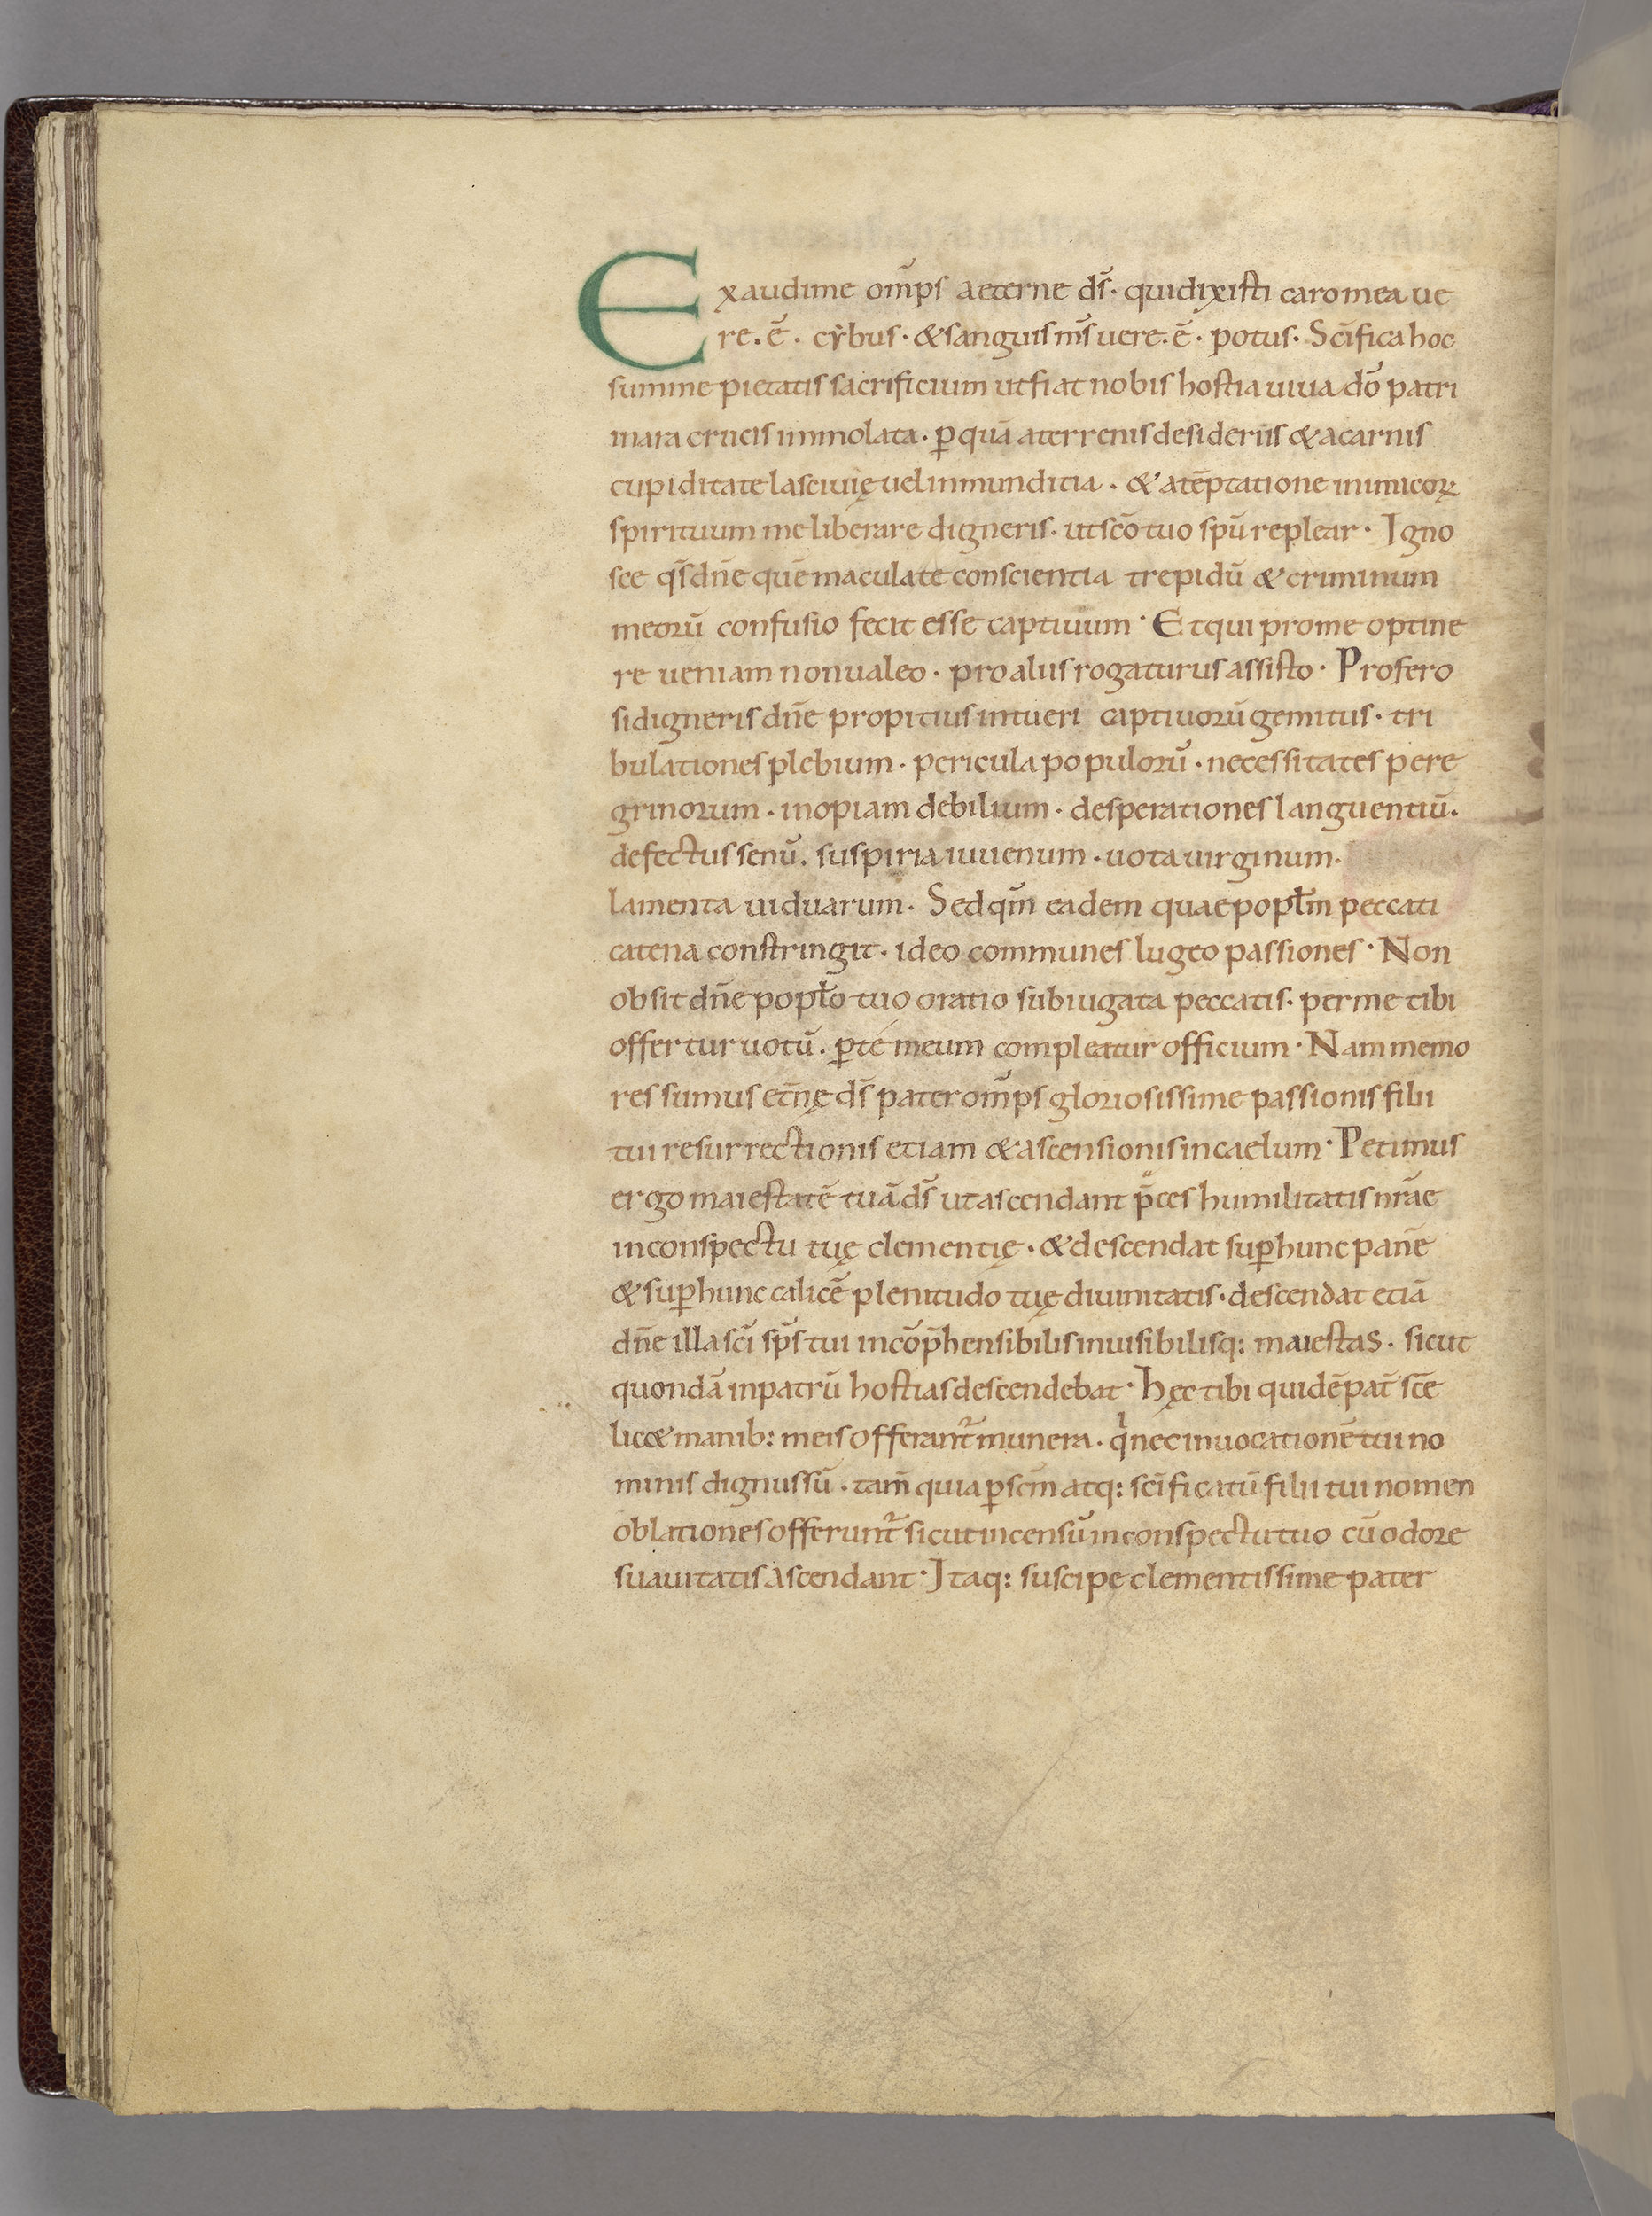 Exaudi me om̄ps aeterne ds̄· qui dixisti caro mea ue
re. ē. cẏbus· & sanguis m̄s uere. ē· potus· Sc̄ifica hoc
summe pietatis sacrificium ut fiat nobis hostia uiua dō patri
in ara crucis immolata· ꝑ quā a terrenis desideriis & a carnis
cupiditate lasciuię uel inmunditia· & a tēptatione inimicoꝝ
spirituum me liberare digneris· ut sc̄o tuo spū replear· Igno
sce qs̄ dn̄e quē maculate conscientia trepidū & criminum
meorū confusio fecit esse captiuum· Et qui pro me optine
re ueniam non ualeo· pro aliis rogaturus assisto· Profero
si digneris dn̄e propitius intueri captiuorū gemitus· tri
bulationes plebium· pericula populorū· necessitates pere
grinorum· inopiam debilium· desperationes languentiū·
defectus senū. suspiria iuuenum· uota uirginum·
lamenta uiduarum· Sed qm̄ eadem quae popłm peccati
catena constringit· ideo communes lugeo passiones· Non
obsit dn̄e popło tuo oratio subiugata peccatis· per me tibi
offertur uotū. ꝑ te meum compleatur officium· Nam memo
res sumus et̄nę ds̄ pater om̄ps gloriosissime passionis filii
tui resurrectionis etiam & ascensionis in caelum· Petimus
ergo maiestatē tuā ds̄ ut ascendant p̄ces humilitatis nr̄ae
in conspectu tuę clementię· & descendat suꝑ hunc panē
& suꝑ hunc calicē plenitudo tuę diuinitatis· descendat etiā
dn̄e illa sc̄i sp̄s tui incōp̄hensibilis inuisibilisq: maiestas· sicut
quondā in patrū hostias descendebat· hęc tibi quidē pat̄ sc̄e
lic& manib: meis offerant᷑ munera· qͥ nec inuocationē tui no
minis dignus sū· tam̄ quia ꝑ sc̄m atq: sc̄ificatū filii tui nomen
oblationes offerunt᷑ sicut incensū in conspectu tuo cū odore
suauitatis ascendant· Itaq: suscipe clementissime pater